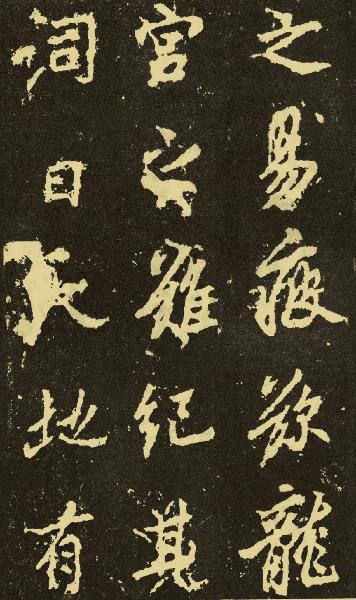 之易疲龍
宮之難紀其
詞曰天地有